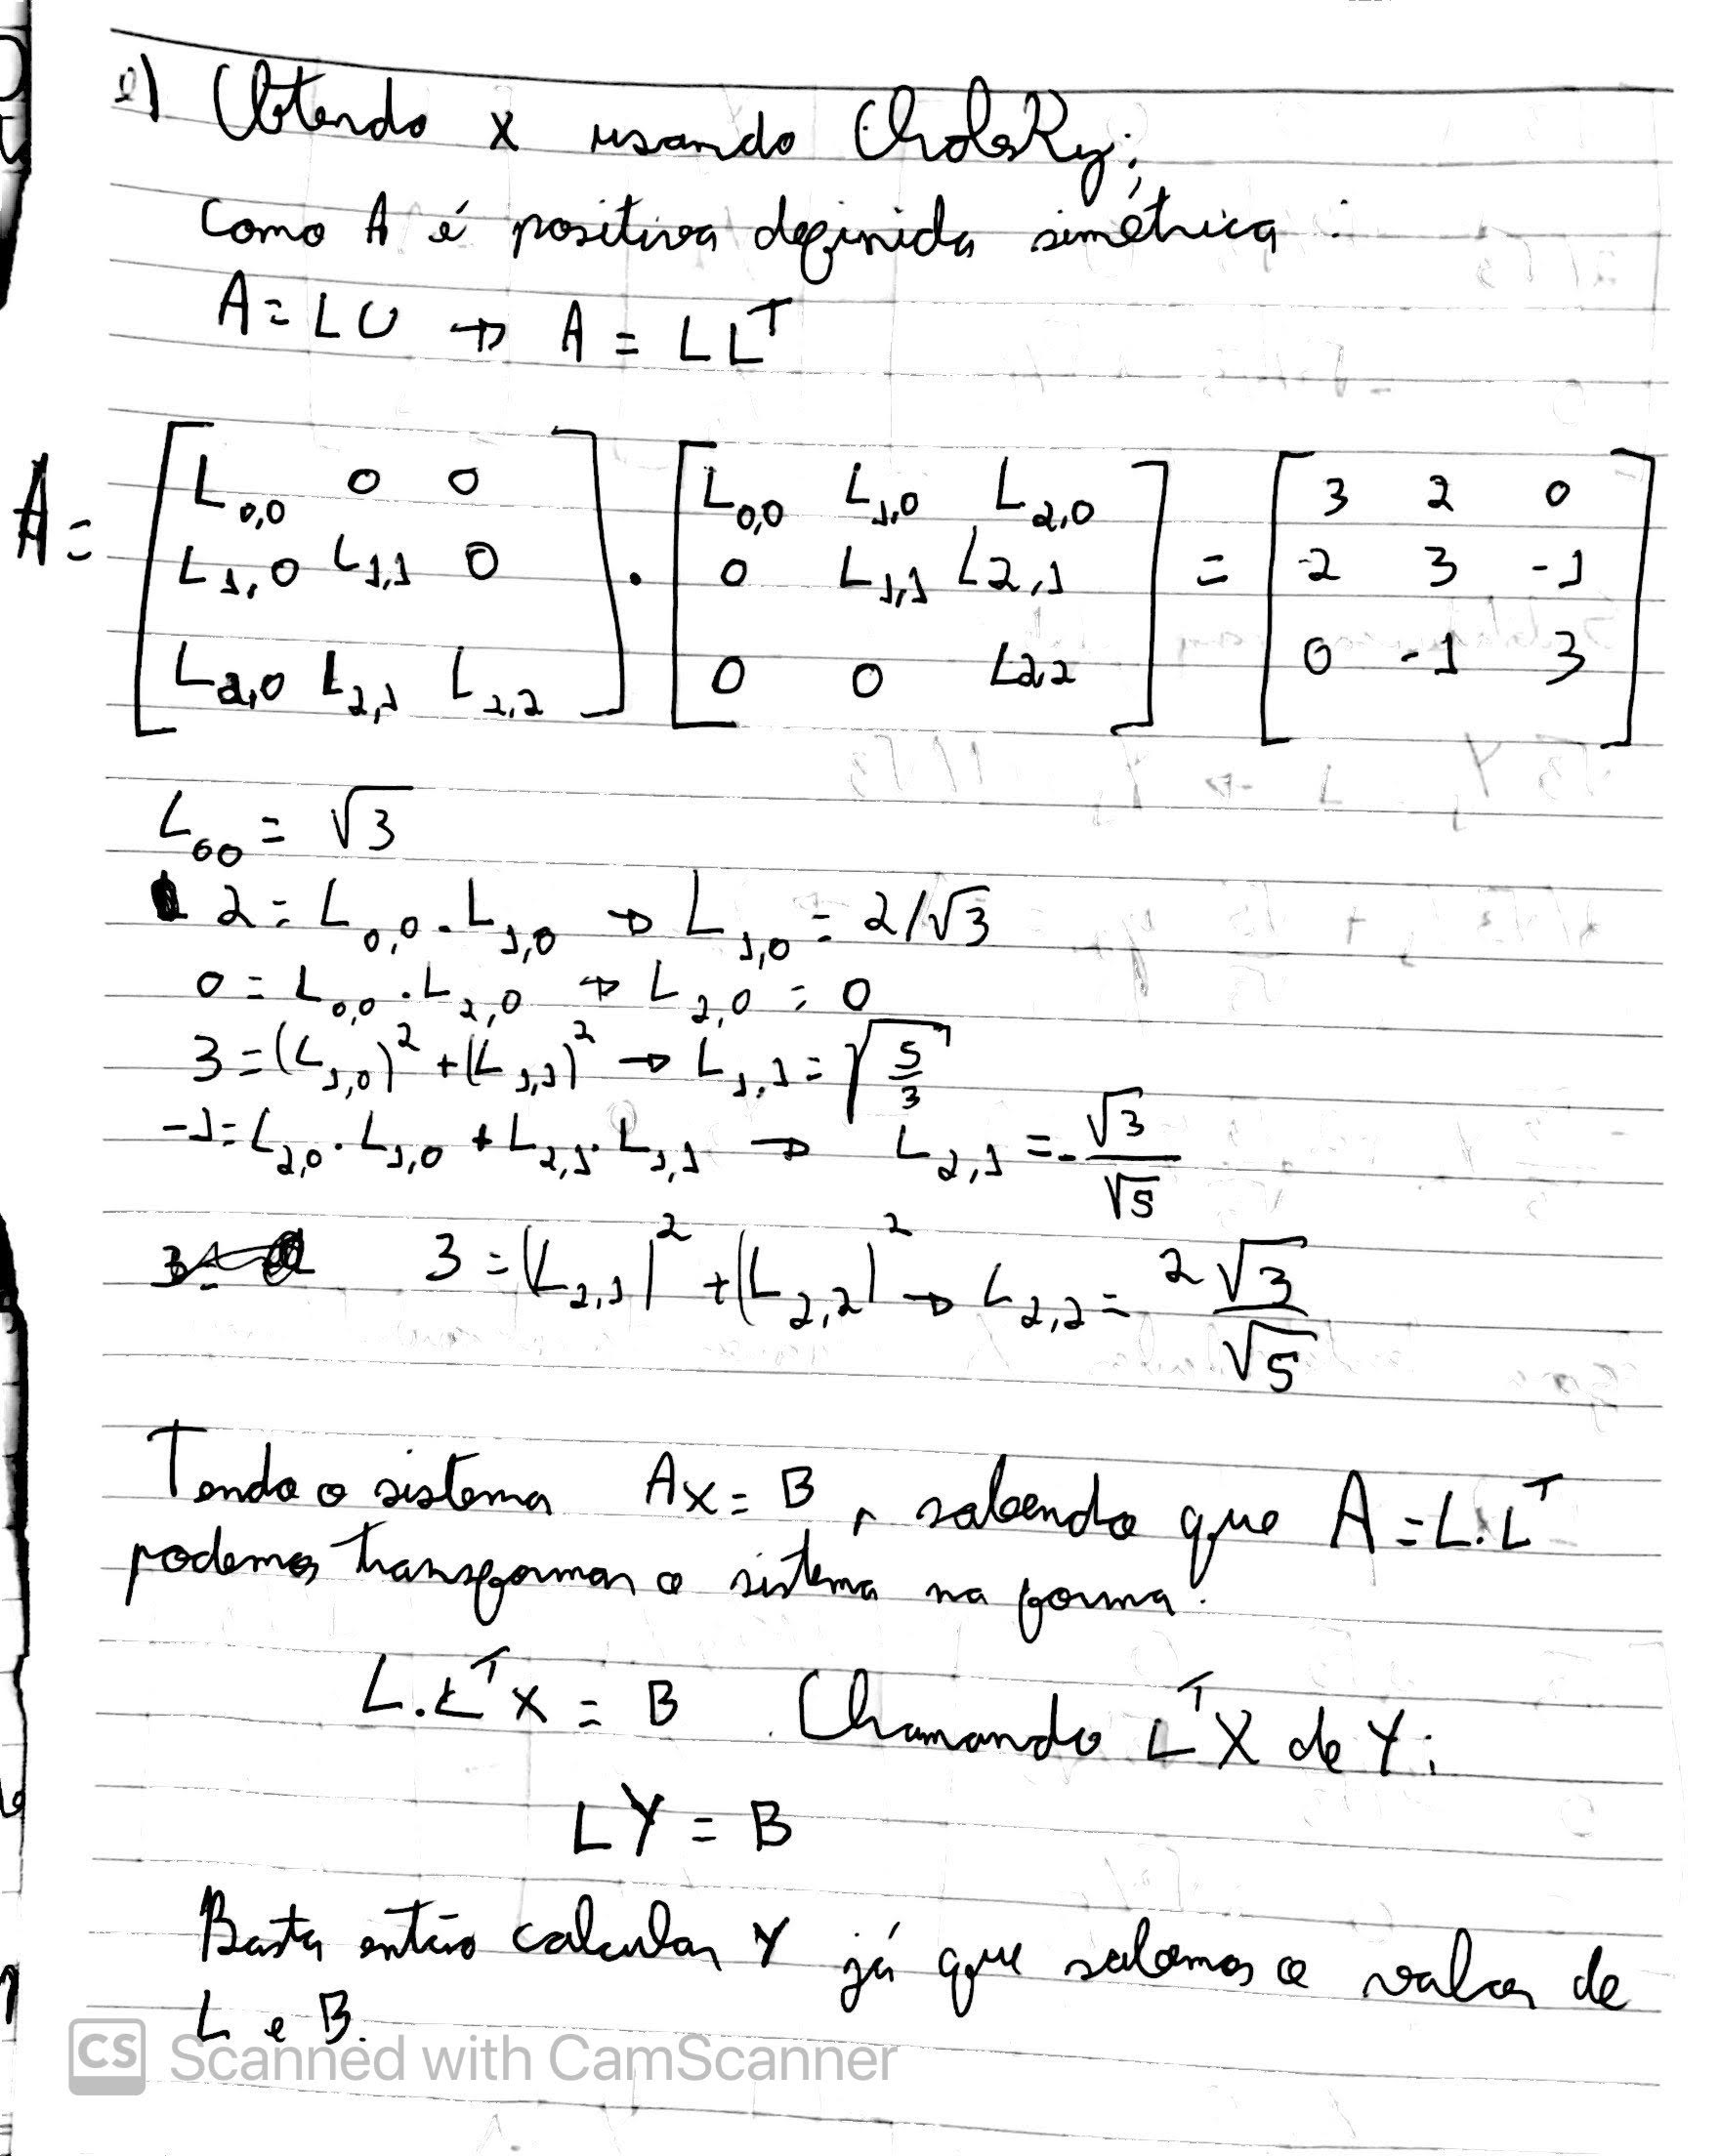 e) Obtendo x usando Cholesky;
Como A é positiva definida simétrica :
A = LU → A = LL^T
A = [L0,0 0 0; L1,0 L1,1 0; L2,0 L2,1 L2,2] . [L0,0 L1,0 L2,0; 0 L1,1 L2,1; 0 0 L2,2] = [3 2 0; 2 3 -1; 0 -1 3]
L00 = √3
2 = L0,0 . L1,0 → L1,0 = 2/√3
0 = L0,0 . L2,0 → L2,0 = 0
3 = (L1,0)^2 + (L1,1)^2 → L1,1 = √(5/3)
-1 = L2,0 . L1,0 + L2,1 . L1,1 → L2,1 = -√3/√5
3 = (L2,1)^2 + (L2,2)^2 → L2,2 = 2√3/√5
Tendo o sistema Ax = B, sabendo que A = L.L^T
podemos transformar o sistema na forma:
L.L^T x = B. Chamando L^T X de Y:
LY = B
Basta então calcular Y já que sabemos o valor de
L e B.
CS Scanned with CamScanner